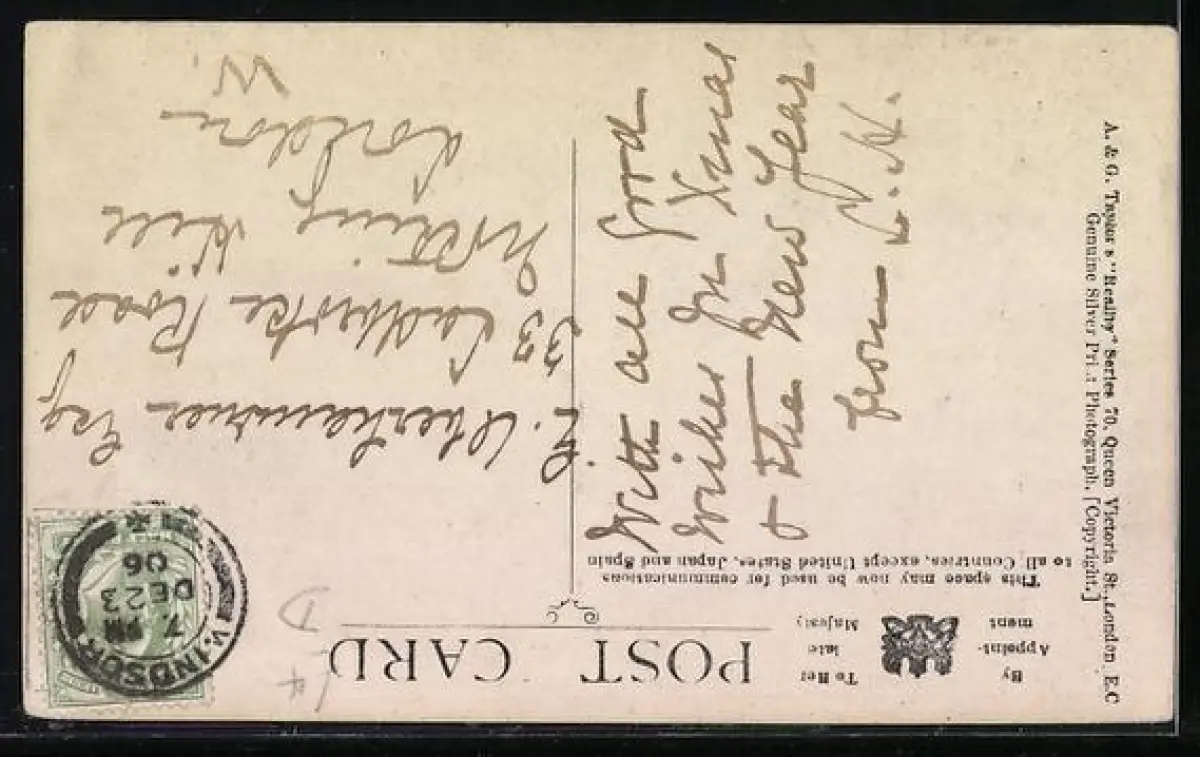 POST CARD
By
Appoint-
ment
To Her
late
Majesty
This space may now be used for communications
to all Countries, except United States, Japan and Spain
With all good
wishes for Xmas
& the New Year
from L. H.
Esq
33 Ladbroke Road
Notting Hill
London
W.
WINDSOR
7. PM
DE 23
06
A. & G. Taylor's "Reality" Series 70, Queen Victoria St., London E.C
Genuine Silver Print Photograph. [Copyright.]